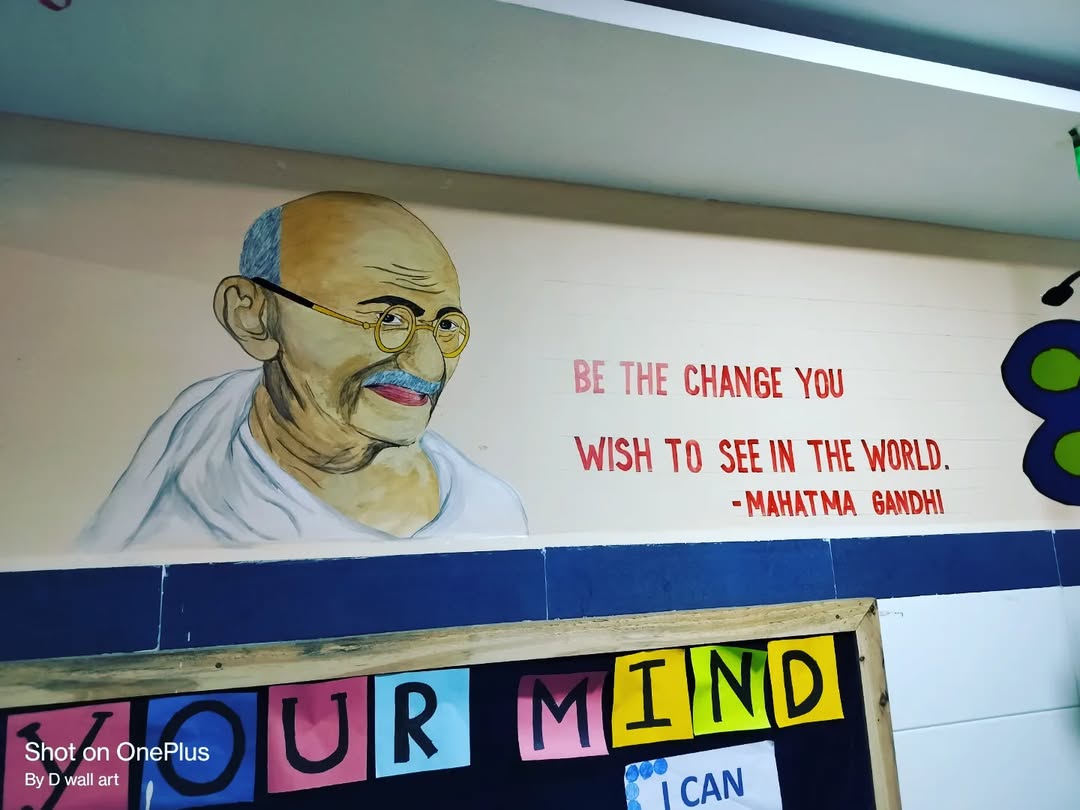 BE THE CHANGE YOU
WISH TO SEE IN THE WORLD.
-MAHATMA GANDHI
YOUR MIND
I CAN
Shot on OnePlus
By D wall art